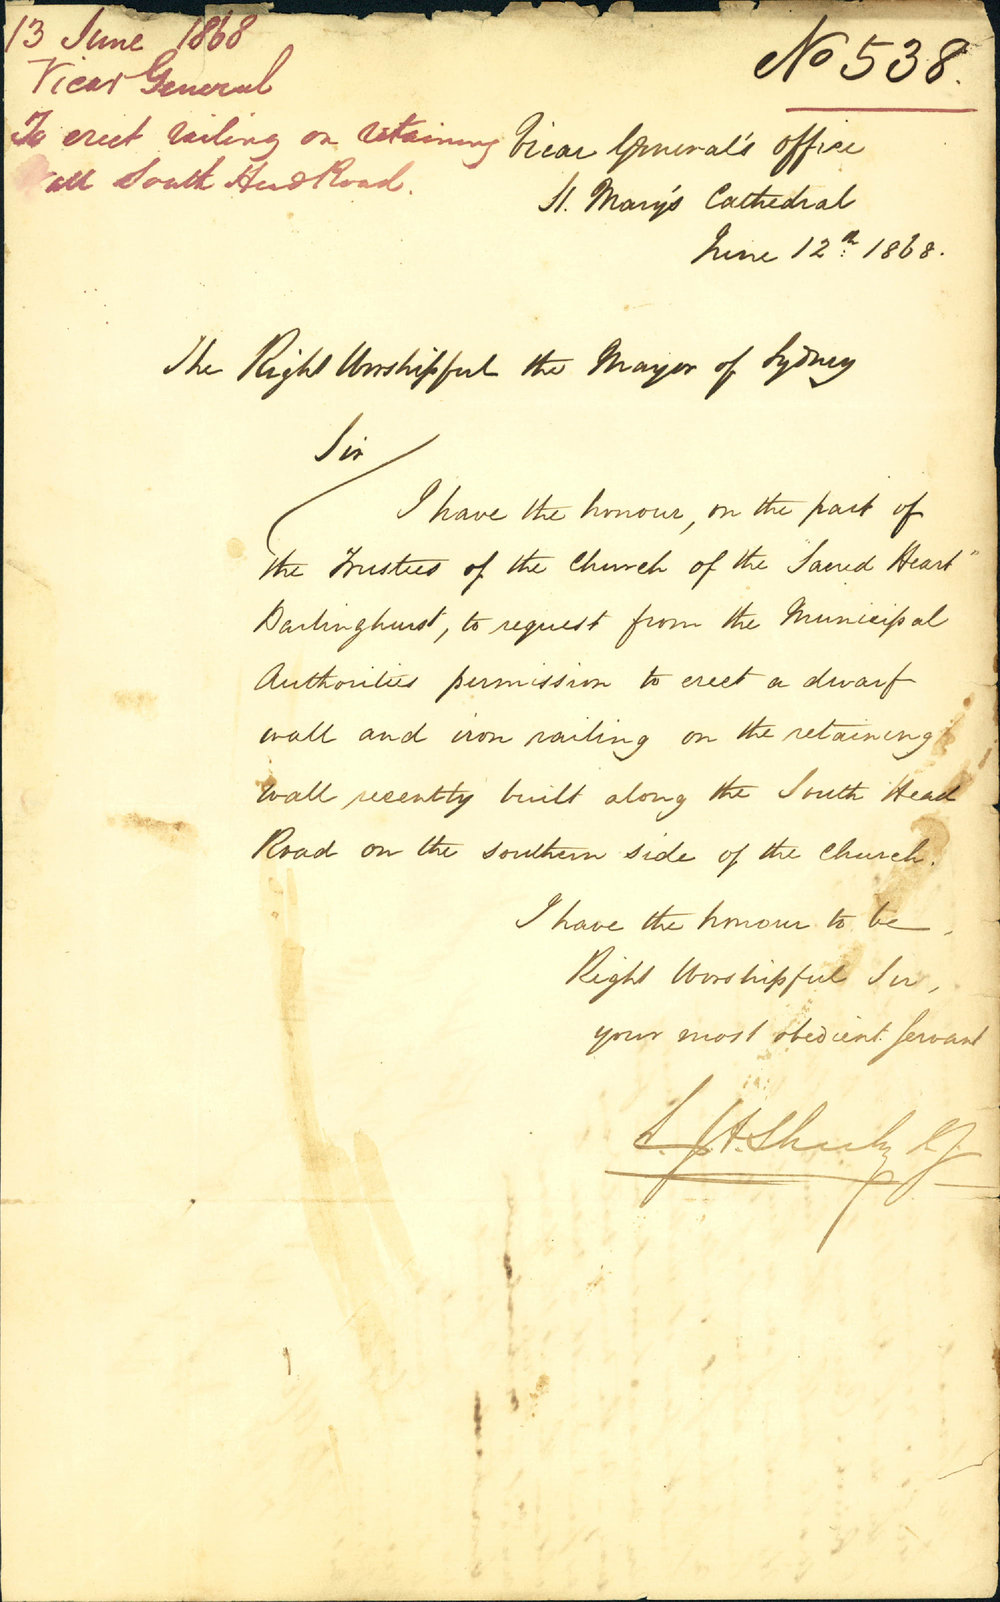 13 June 1868
Vicar General
To erect railing on retaining
wall South Head Road.
No 538.
Vicar General's office
St. Mary's Cathedral
June 12th 1868.
The Right Worshipful the Mayor of Sydney
Sir
I have the honour, on the part of
the Trustees of the Church of the "Sacred Heart"
Darlinghurst, to request from the Municipal
Authorities permission to erect a dwarf
wall and iron railing on the retaining
wall recently built along the South Head
Road on the southern side of the Church.
I have the honour to be,
Right Worshipful Sir,
your most obedient Servant
S. J. A. Sheehy